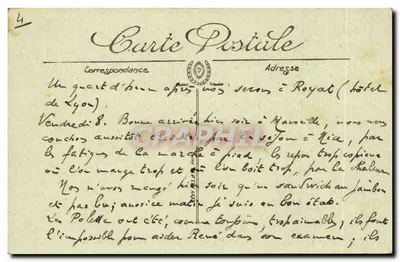 4
Carte Postale
Correspondance
Adresse
Un quart d'heure après nous serons à Royat (hôtel
de Lyon).
Vendredi 8. Bonne arrivée hier soir à Marseille, nous nous
couchons aussitôt par le séjour à Nice, par
les fatigues de la marche à pied, les repas trop copieux
où l'on mange trop et où l'on boit trop, par la chaleur
Nous n'avons mangé hier soir qu'un sandwich au jambon
et pas bu; aussi ce matin je suis en bon état.
Les Polette ont été, comme toujours, trop aimables, ils font
l'impossible pour aider René dans son examen; ils